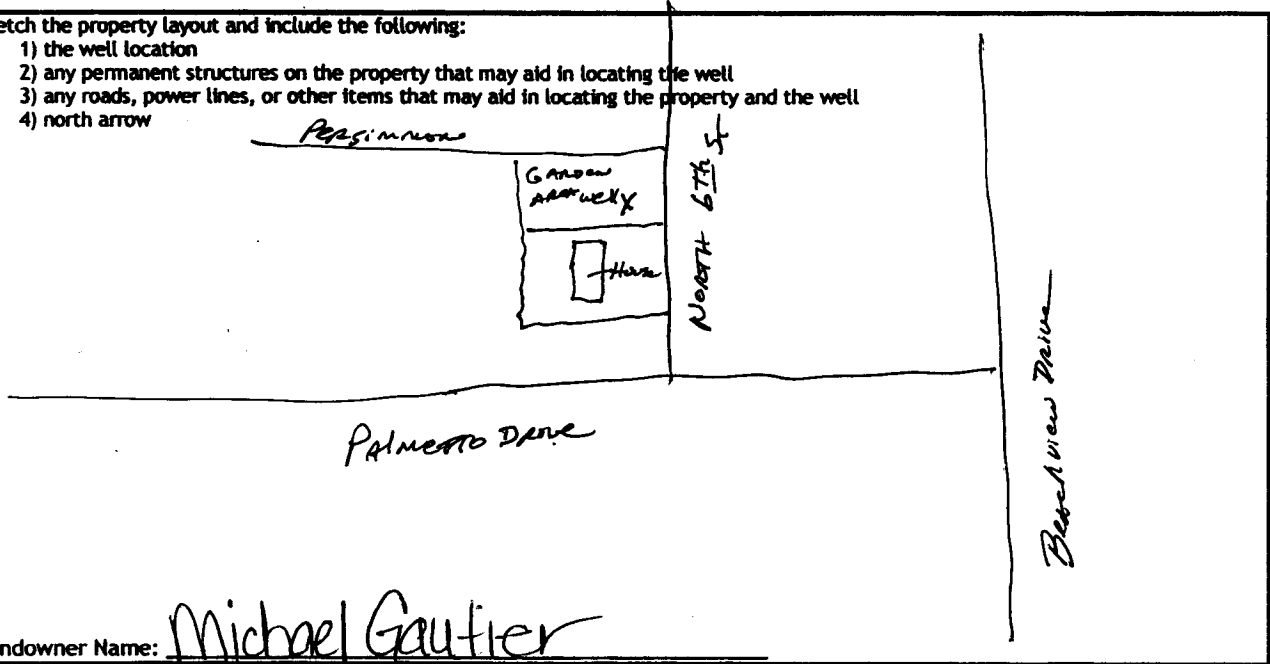 etch the property layout and include the following:
1) the well location
2) any permanent structures on the property that may aid in locating the well
3) any roads, power lines, or other items that may aid in locating the property and the well
4) north arrow
Persimmon
GARDEN
AREA well X
House
NORTH 6Th St
PAlmetto DRIVE
Beachview Drive
ndowner Name: Michael Gautier